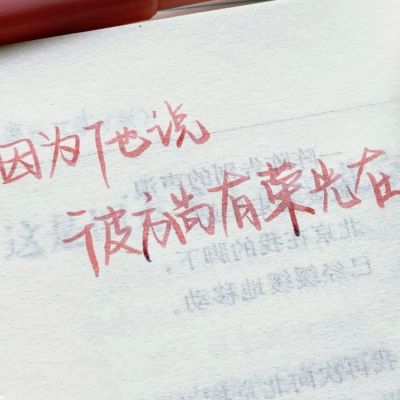 因为他说
彼方尚有荣光在